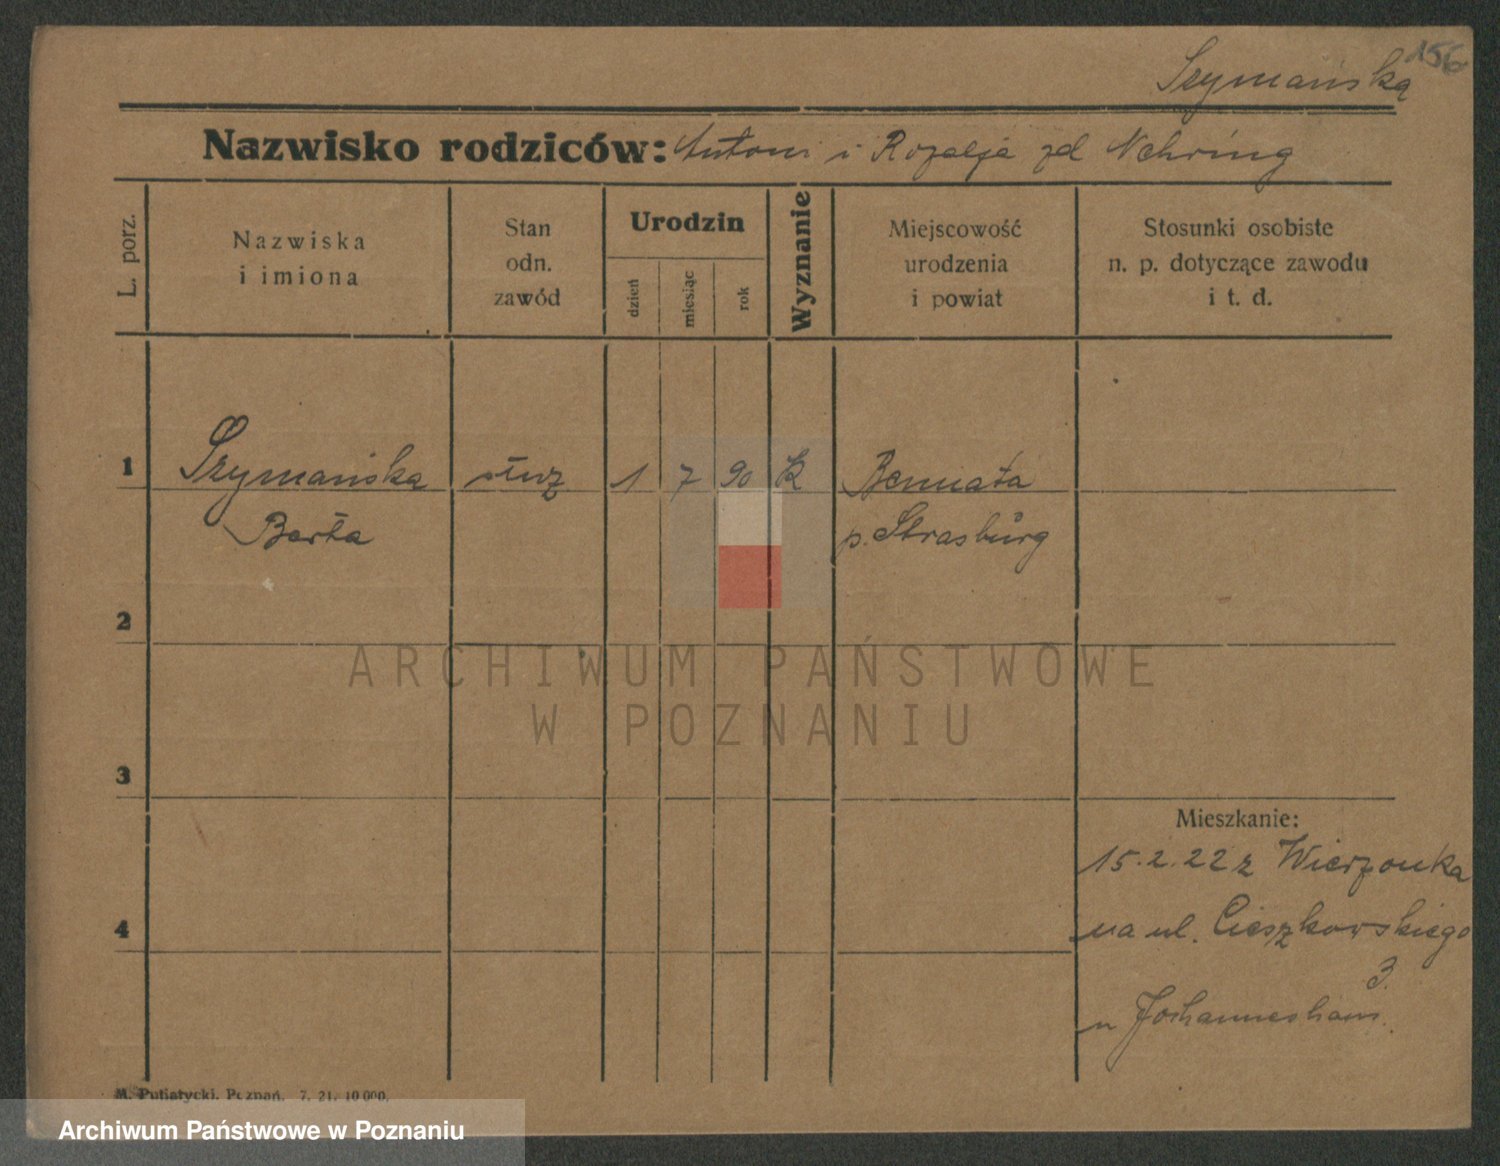 156
Szymańska
Nazwisko rodziców: Antoni i Rozalja zd Nehring
L. porz.
Nazwiska
i imiona
Stan
odn.
zawód
Urodzin
dzień
miesiąc
rok
Wyznanie
Miejscowość
urodzenia
i powiat
Stosunki osobiste
n. p. dotyczące zawodu
i t. d.
1 Szymańska służ 1 7 90 k
Berta p. Strasburg
2
ARCHIWUM PAŃSTWOWE
W POZNANIU
3
Mieszkanie:
15.2.22 z Wierzonka
4
na ul. Cieszkowskiego
3.
n Johanneshaus.
M. Putiatycki, Poznań. 7. 21. 10 000.
Archiwum Państwowe w Poznaniu